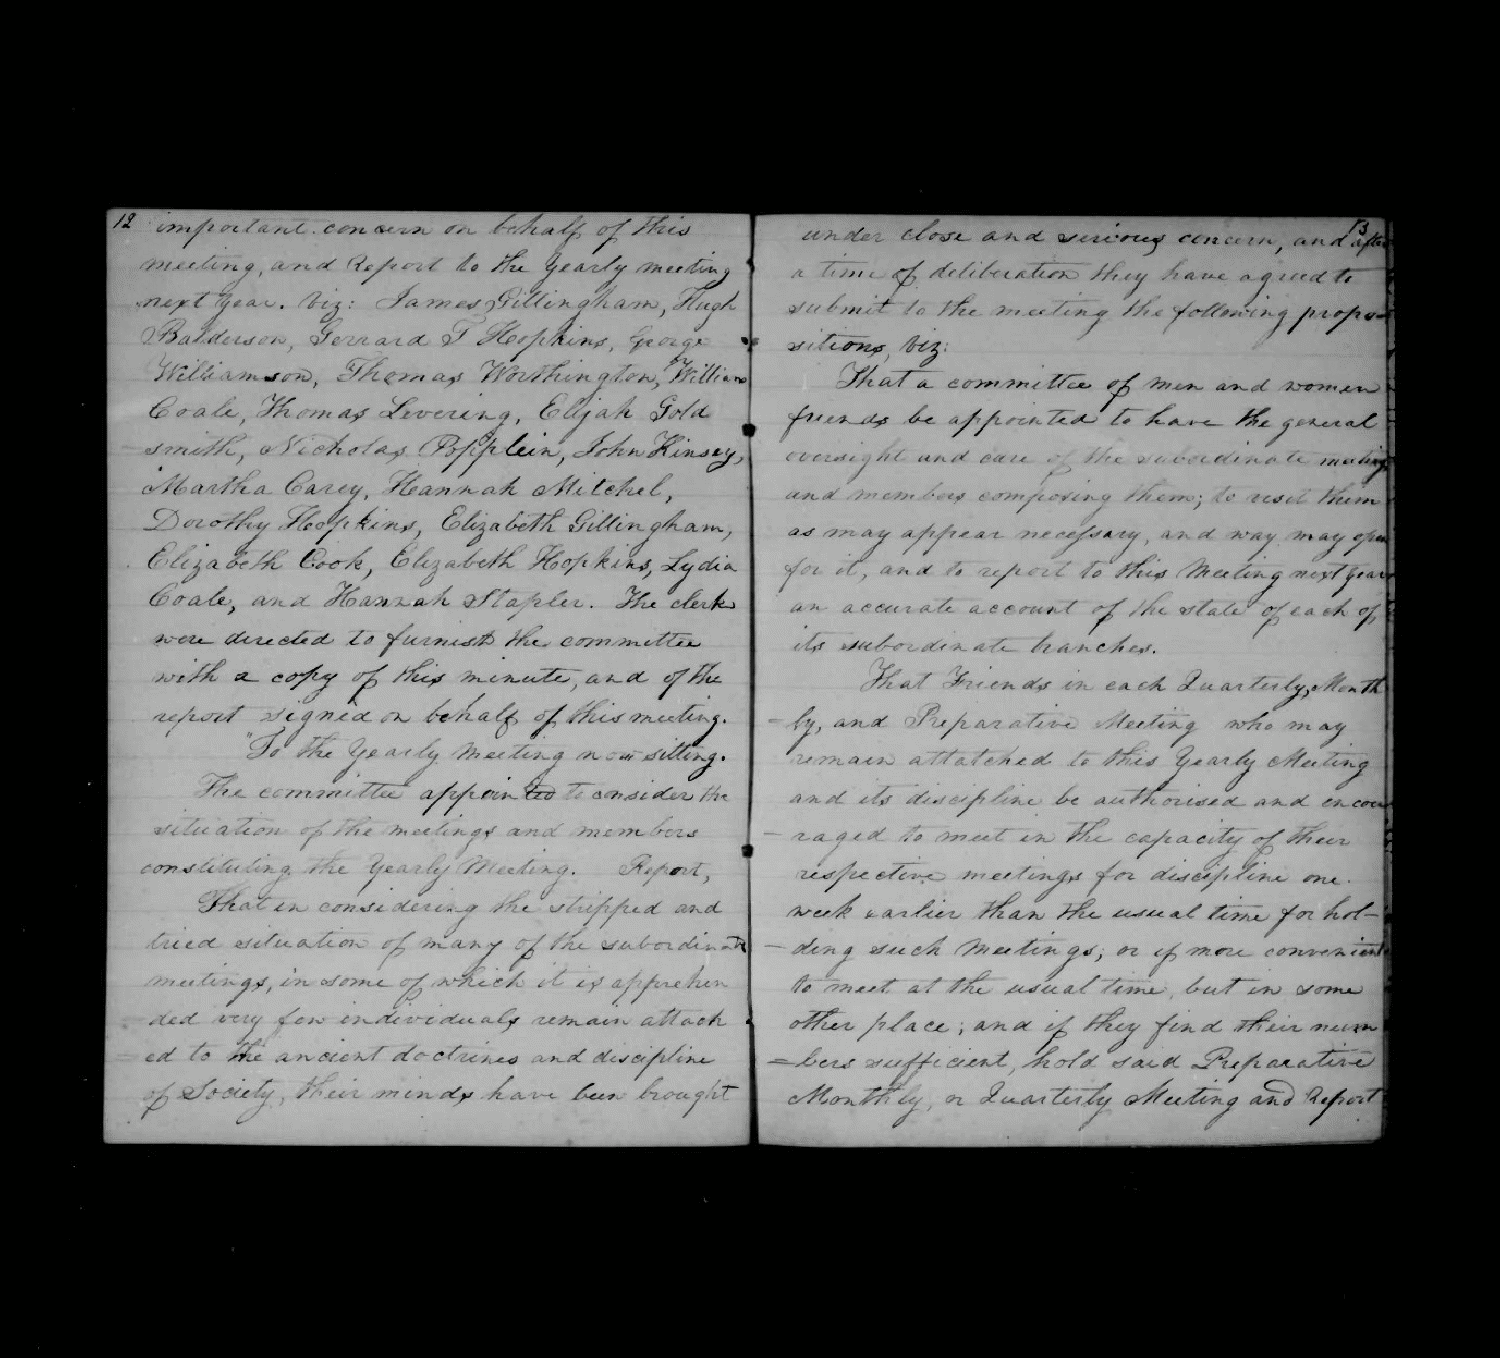 12 important concern on behalf of this
meeting, and Report to the yearly meeting
next year. Viz: James Gillingham, Hugh
Balderson, Gerrard T Hopkins, George
Williamson, Thomas Worthington, William
Coale, Thomas Levering, Elijah Gold
smith, Nicholas Popplein, John Kinsey,
Martha Carey, Hannah Mitchel,
Dorothy Hopkins, Elizabeth Gillingham,
Elizabeth Cook, Elizabeth Hopkins, Lydia
Coale, and Hannah Stapler. The clerks
were directed to furnish the committee
with a copy of this minute, and of the
report signed on behalf of this meeting.
"To the Yearly Meeting now sitting.
The committee appointed to consider the
situation of the meetings and members
constituting the Yearly Meeting. Report,
That in considering the stripped and
tried situation of many of the subordinate
meetings, in some of which it is apprehen
ded very few individuals remain attach
ed to the ancient doctrines and discipline
of Society, their minds have been brought
13
under close and serious concern, and after
a time of deliberation they have agreed to
submit to the meeting the following propo=
sitions, viz:
That a committee of men and women
friends be appointed to have the general
oversight and care of the subordinate meetings
and members composing them; to visit them
as may appear necessary, and way may open
for it, and to report to this Meeting next year
an accurate account of the state of each of
its subordinate branches.
That Friends in each Quarterly, Month
=ly, and Preparative Meeting who may
remain attatched to this Yearly Meeting
and its discipline be authorised and encou
-raged to meet in the capacity of their
respective meetings for discipline one
week earlier than the usual time for hol-
-ding such Meetings; or if more convenient
to meet at the usual time, but in some
other place; and if they find their num
=bers sufficient, hold said Preparative
Monthly, or Quarterly Meeting and Report